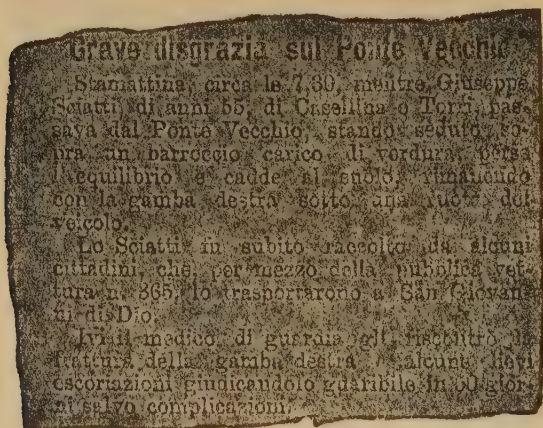 Grave disgrazia sul Ponte Vecchio
Stamattina, circa le 7,30, mentre Giuseppe
Sciatti, di anni 55, di Casellina e Torri, pas-
sava dal Ponte Vecchio, stando seduto so-
pra un barroccio carico di verdura, perse
l'equilibrio e cadde al suolo, rimanendo
con la gamba destra sotto una ruota del
veicolo.
Lo Sciatti fu subito raccolto da alcuni
cittadini che, per mezzo della pubblica vet-
tura n. 365, lo trasportarono a San Giovan-
ni di Dio.
Ivi il medico di guardia gli riscontrò la
frattura della gamba destra alcune lievi
escoriazioni giudicandolo guaribile in 50 gior-
ni salvo complicazioni.